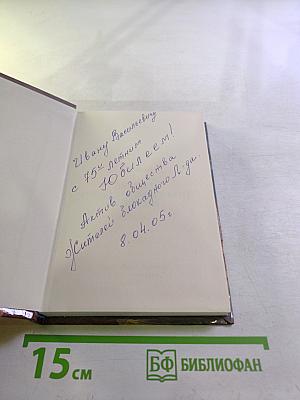 Ивану Васильевичу
с 75и летним
Юбилеем!
Актив общества
Жителей блокадного Л-да.
8.04.05г
15 см
БФ БИБЛИОФАН